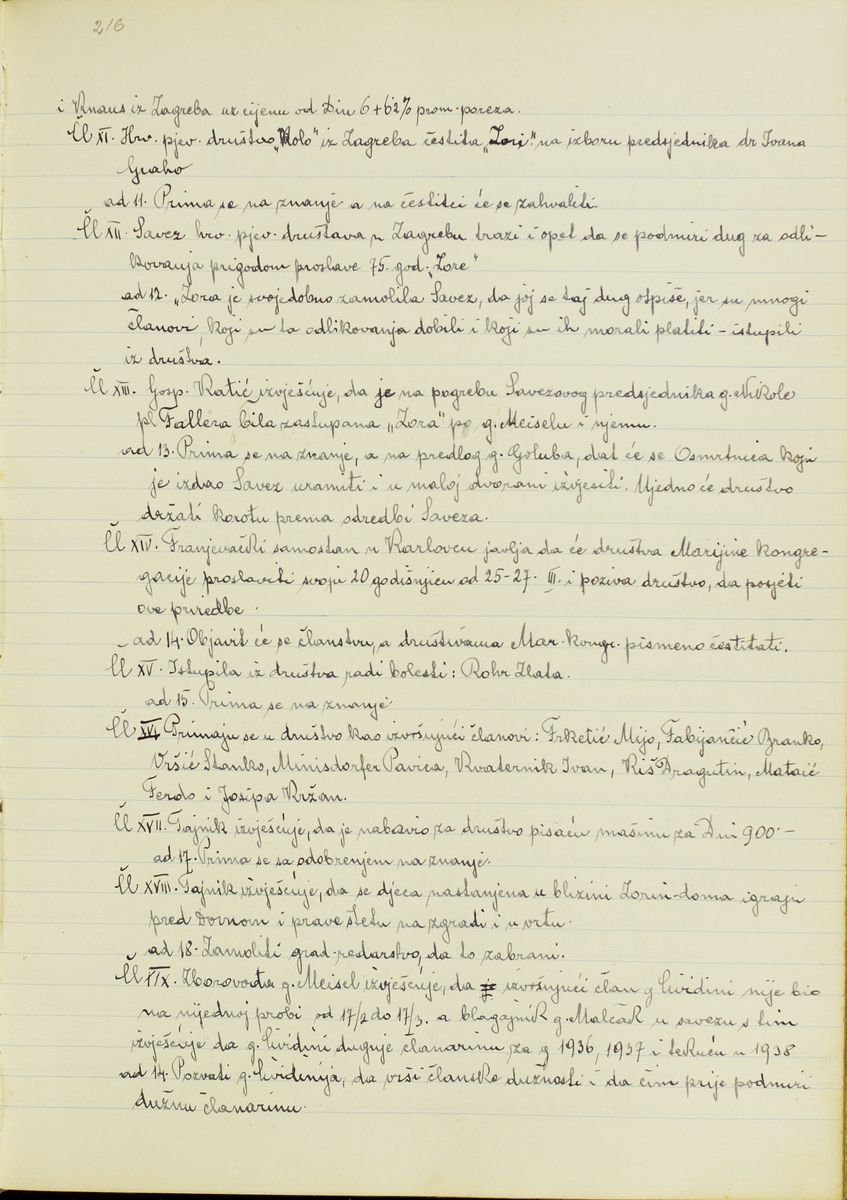 216
i Knaus iz Zagreba uz cijenu od Din 6 + 6'2% prom. poreza.
Čl XI. Hrv. pjev. društvo „Kolo" iz Zagreba čestita „Zori" na izboru predsjednika dr Ivana
Gnaho
ad 11. Prima se na znanje a na čestitci će se zahvaliti
Čl XII. Savez hrv. pjev. društava u Zagrebu traži i opet da se podmiri dug za odli-
kovanja prigodom proslave 75. god. „Zore"
ad 12. „Zora je svojedobno zamolila Savez, da joj se taj dug otpiše, jer su mnogi
članovi, koji su ta odlikovanja dobili i koji su ih morali platiti - istupili
iz društva.
Čl XIII. Gosp. Katić izvješćuje, da je na pogrebu Savezovog predsjednika g. Nikole
pl Fallera bila zastupana „Zora" po g. Meiselu i njemu.
ad 13. Prima se na znanje, a na predlog g. Goluba, dat će se Osmrtnica koju
je izdao Savez uramiti i u maloj dvorani izvjesiti. Ujedno će društvo
držati korotu prema odredbi Saveza.
Čl XIV. Franjevački samostan u Karlovcu javlja da će društva Marijine kongre-
gacije proslaviti svoju 20 godišnjicu od 25-27. III. i poziva društvo, da posjeti
ove priredbe.
ad 14. Objavit će se članstvu, a društvima Mar. kongr. pismeno čestitati.
Čl XV. Istupila iz društva radi bolesti: Rohr Zlata.
ad 15. Prima se na znanje
Čl XVI. Primaju se u društvo kao izvršujući članovi: Frketić Mijo, Fabijančić Branko,
Vršić Stanko, Minisdorfer Pavica, Kvaternik Ivan, Kiš Dragutin, Mataić
Ferdo i Josipa Kržan.
Čl XVII. Tajnik izvješćuje, da je nabavio za društvo pisaću mašinu za Din 900.-
ad 17. Prima se sa odobrenjem na znanje.
Čl XVIII. Tajnik izvješćuje, da se djeca nastanjena u blizini Zorin-doma igraju
pred Domom i prave štetu na zgradi i u vrtu.
ad 18. Zamoliti grad. redarstvo, da to zabrani.
Čl XIX. Zborovođa g. Meisel izvješćuje, da je izvršujući član g Cividini nije bio
na nijednoj probi od 17/2 do 17/3. a blagajnik g. Malčak u savezu s tim
izvješćuje da g. Cividini duguje članarinu za g 1936, 1937 i tekuću u 1938
ad 14. Pozvati g. Cividinija, da vrši članske dužnosti i da čim prije podmiri
dužnu članarinu.